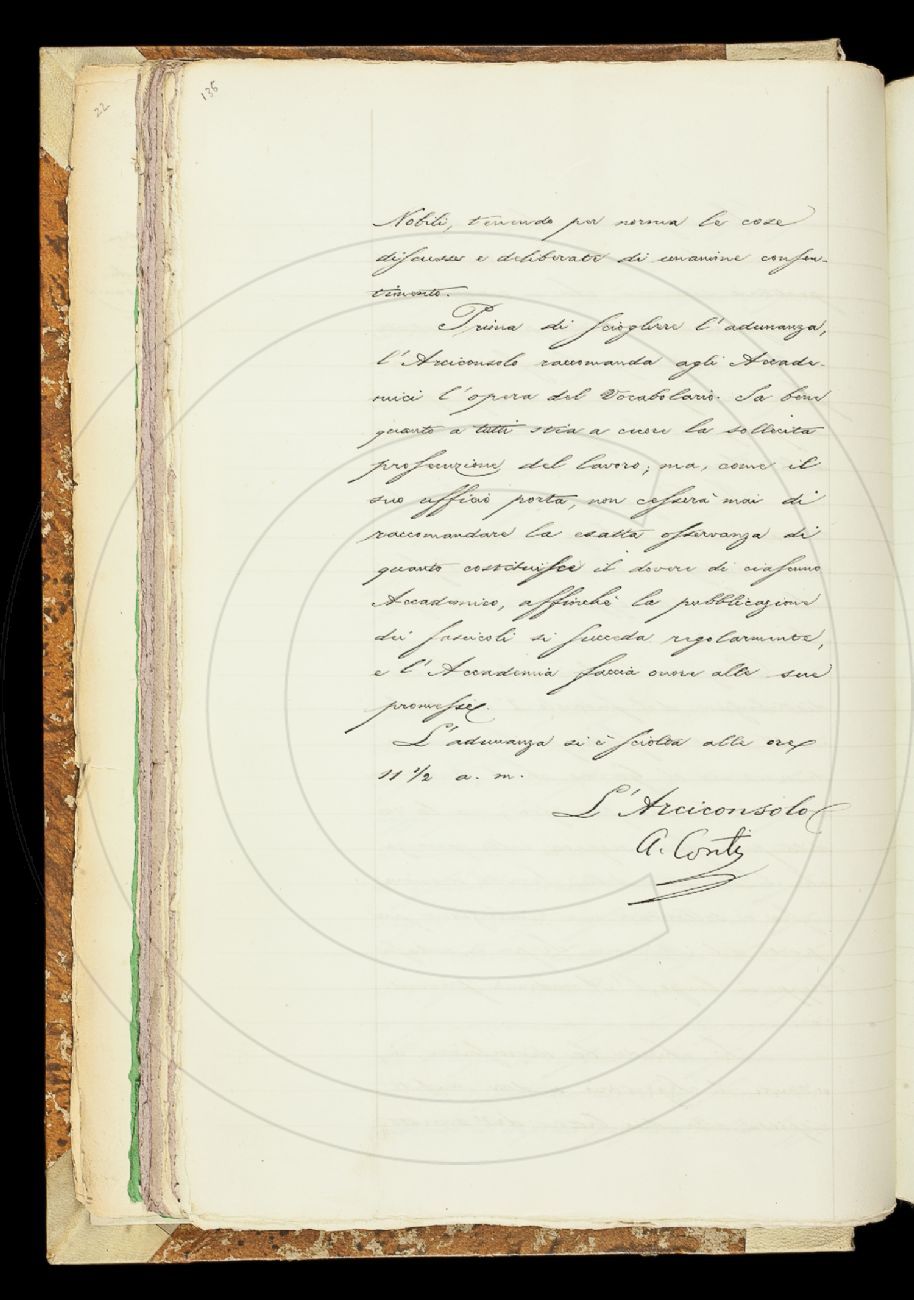 22
136
Nobili, tenendo per norma le cose
discusse e deliberate di unanime consen-
timento.
Prima di sciogliere l'adunanza,
l'Arciconsolo raccomanda agli Accade-
mici l'opera del Vocabolario. Sa bene
quanto a tutti stia a cuore la sollecita
prosecuzione del lavoro; ma, come il
suo ufficio porta, non cesserà mai di
raccomandare la esatta osservanza di
quanto costituisce il dovere di ciascuno
Accademico, affinchè la pubblicazione
dei fascicoli si succeda regolarmente,
e l'Accademia faccia onore alle sue
promesse.
L'adunanza si è sciolta alle ore
11 1/2 a. m.
L'Arciconsolo
A. Conti